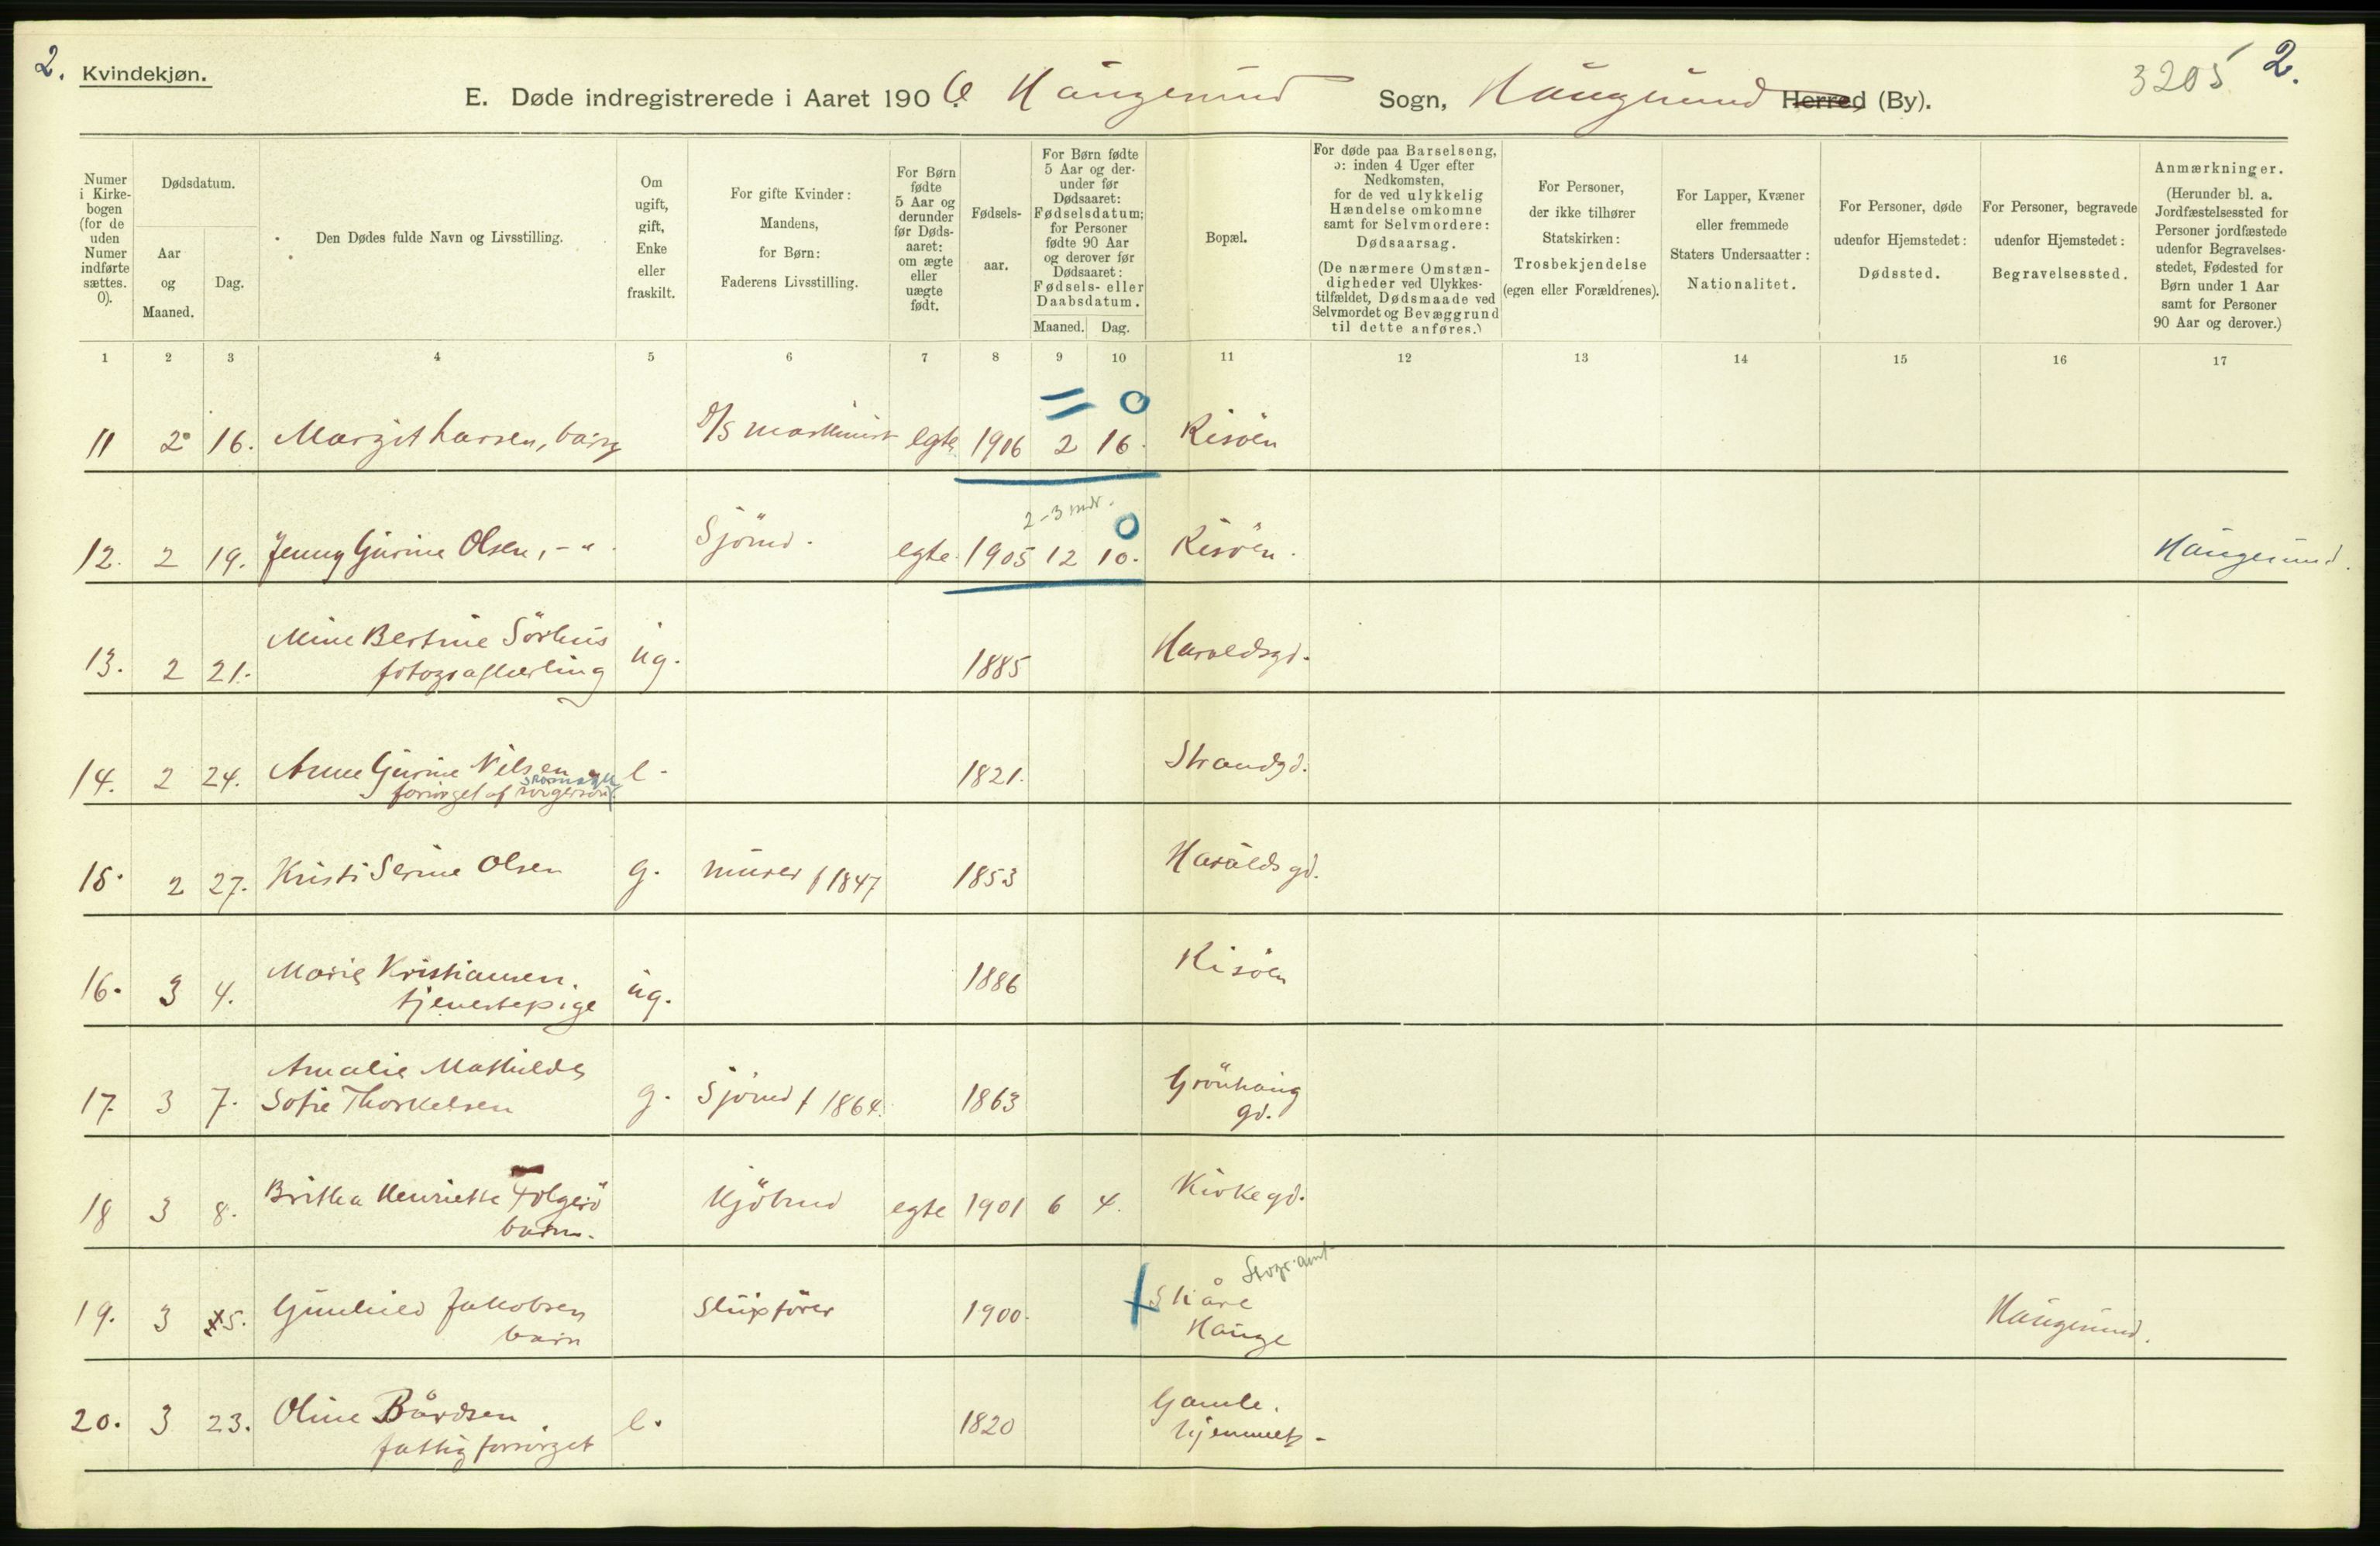 2. Kvindekjøn.
E. Døde indregistrerede i Aaret 1906. Haugesund Sogn, Haugesund Herred (By). 3205 2.
Numer i Kirkebogen (for de uden Numer indførte sættes. 0).
Dødsdatum.
Aar og Maaned.
Dag.
Den Dødes fulde Navn og Livsstilling.
Om ugift, gift, Enke eller fraskilt.
For gifte Kvinder: Mandens, for Børn: Faderens Livsstilling.
For Børn fødte 5 Aar og derunder før Dødsaaret: om ægte eller uægte født.
Fødselsaar.
For Børn fødte 5 Aar og derunder før Dødsaaret: Fødselsdatum; for Personer fødte 90 Aar og derover før Dødsaaret: Fødsels- eller Daabsdatum.
Maaned. Dag.
Bopæl.
For døde paa Barselseng, ɔ: inden 4 Uger efter Nedkomsten, for de ved ulykkelig Hændelse omkomne samt for Selvmordere: Dødsaarsag.
(De nærmere Omstændigheder ved Ulykkestilfældet, Dødsmaade ved Selvmordet og Bevæggrund til dette anføres.)
For Personer, der ikke tilhører Statskirken: Trosbekjendelse (egen eller Forældrenes).
For Lapper, Kvæner eller fremmede Staters Undersaatter: Nationalitet.
For Personer, døde udenfor Hjemstedet: Dødssted.
For Personer, begravede udenfor Hjemstedet: Begravelsessted.
Anmærkninger.
(Herunder bl. a. Jordfæstelsessted for Personer jordfæstede udenfor Begravelsesstedet, Fødested for Børn under 1 Aar samt for Personer 90 Aar og derover.)
1 2 3 4 5 6 7 8 9 10 11 12 13 14 15 16 17
= 0
11 2 16. Margit Larsen, barn D/S maskinist egte 1906 2 16. Risöen
2-3 mdr. 0
12. 2 19. Jenny Gurine Olsen, -"- Sjömd. egte 1905 12 10. Risöen. Haugesund.
13. 2 21. Mine Bertine Sörhus
fotograflærling ug. 1885 Haraldsgd.
14. 2 24. Anne Gurine Nilsen
forsörget af e. 1821. Strandgd.
15. 2 27. Kristi Serine Olsen g. murer f 1847 1853 Haraldsgd.
16. 3 4. Marie Kristiansen.
tjenestepige ug. 1886 Risöen
17. 3 7. Amalie Mathilde
Sofie Thorkelsen g. Sjömd f 1864. 1863 Grönhaug
gd.
18 3 8. Britha Henriette Folgerö
barn. Kjöbmd egte 1901 6 4. Kirkegd.
19. 3 5. Gunhild Jakobsen
barn Slupförer 1900. Skåre
Hauge Haugesund.
20. 3 23. Oline Bårdsen
fattigforsörget e. 1820 Gamle.
hjemmet.